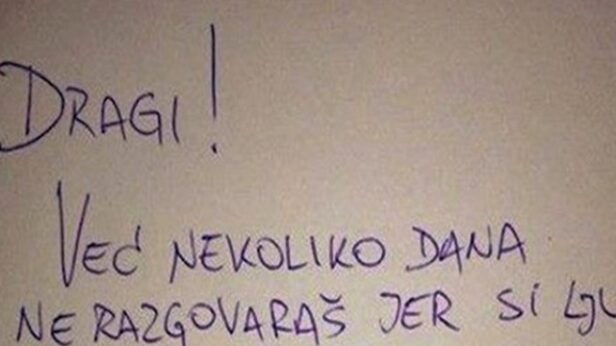 DRAGI!
VEĆ NEKOLIKO DANA
NE RAZGOVARAŠ JER SI